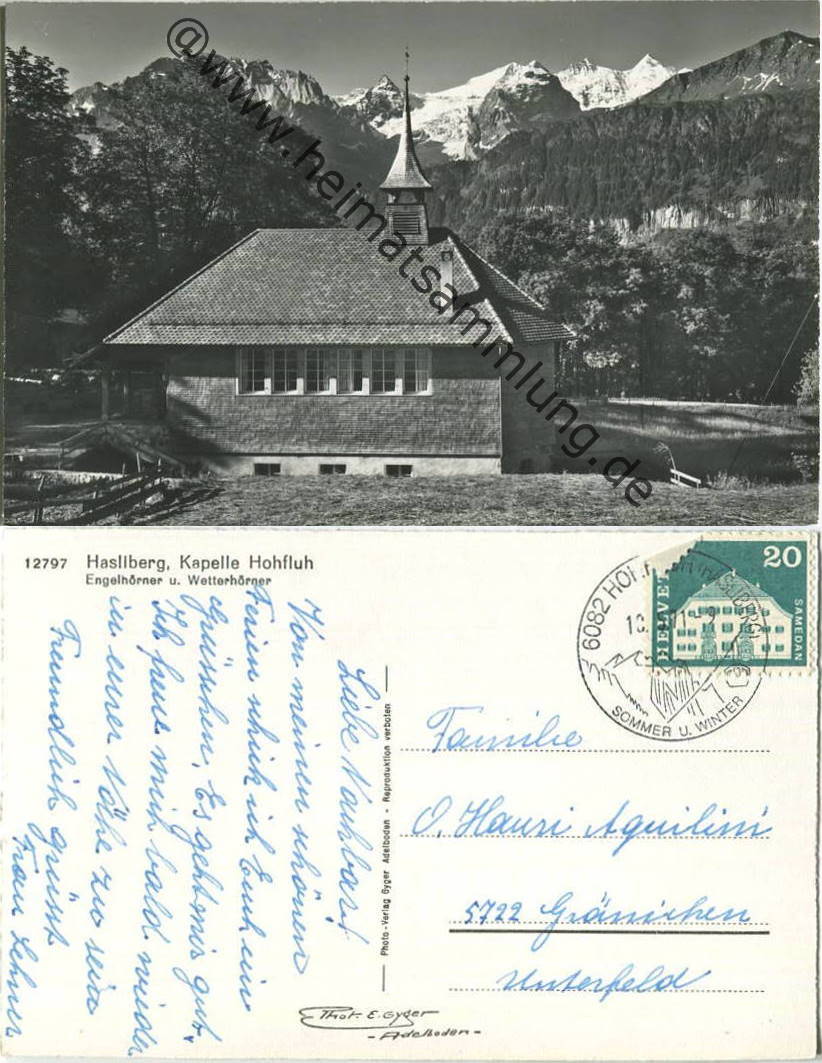 @www.heimatsammlung.de
12797 Hasliberg, Kapelle Hohfluh
Engelhörner u. Wetterhörner
HELVET
20
SAMEDAN
6082 HOH
SOMMER U. WINTER
Liebe Nachbar!
Von meinen schönen
Ferien schick ich Euch ein
Grüsschn, Es geht mir gut,
Ich freue mich bald wieder
in eurer Nähe zu sein
Freundlich grüsst
Frau Lehner
Photo-Verlag Gyger Adelboden - Reproduktion verboten
Familie
O. Hauri Aquilini
5722 Gränichen
Unterfeld
Phot. E. Gyger
- Adelboden -